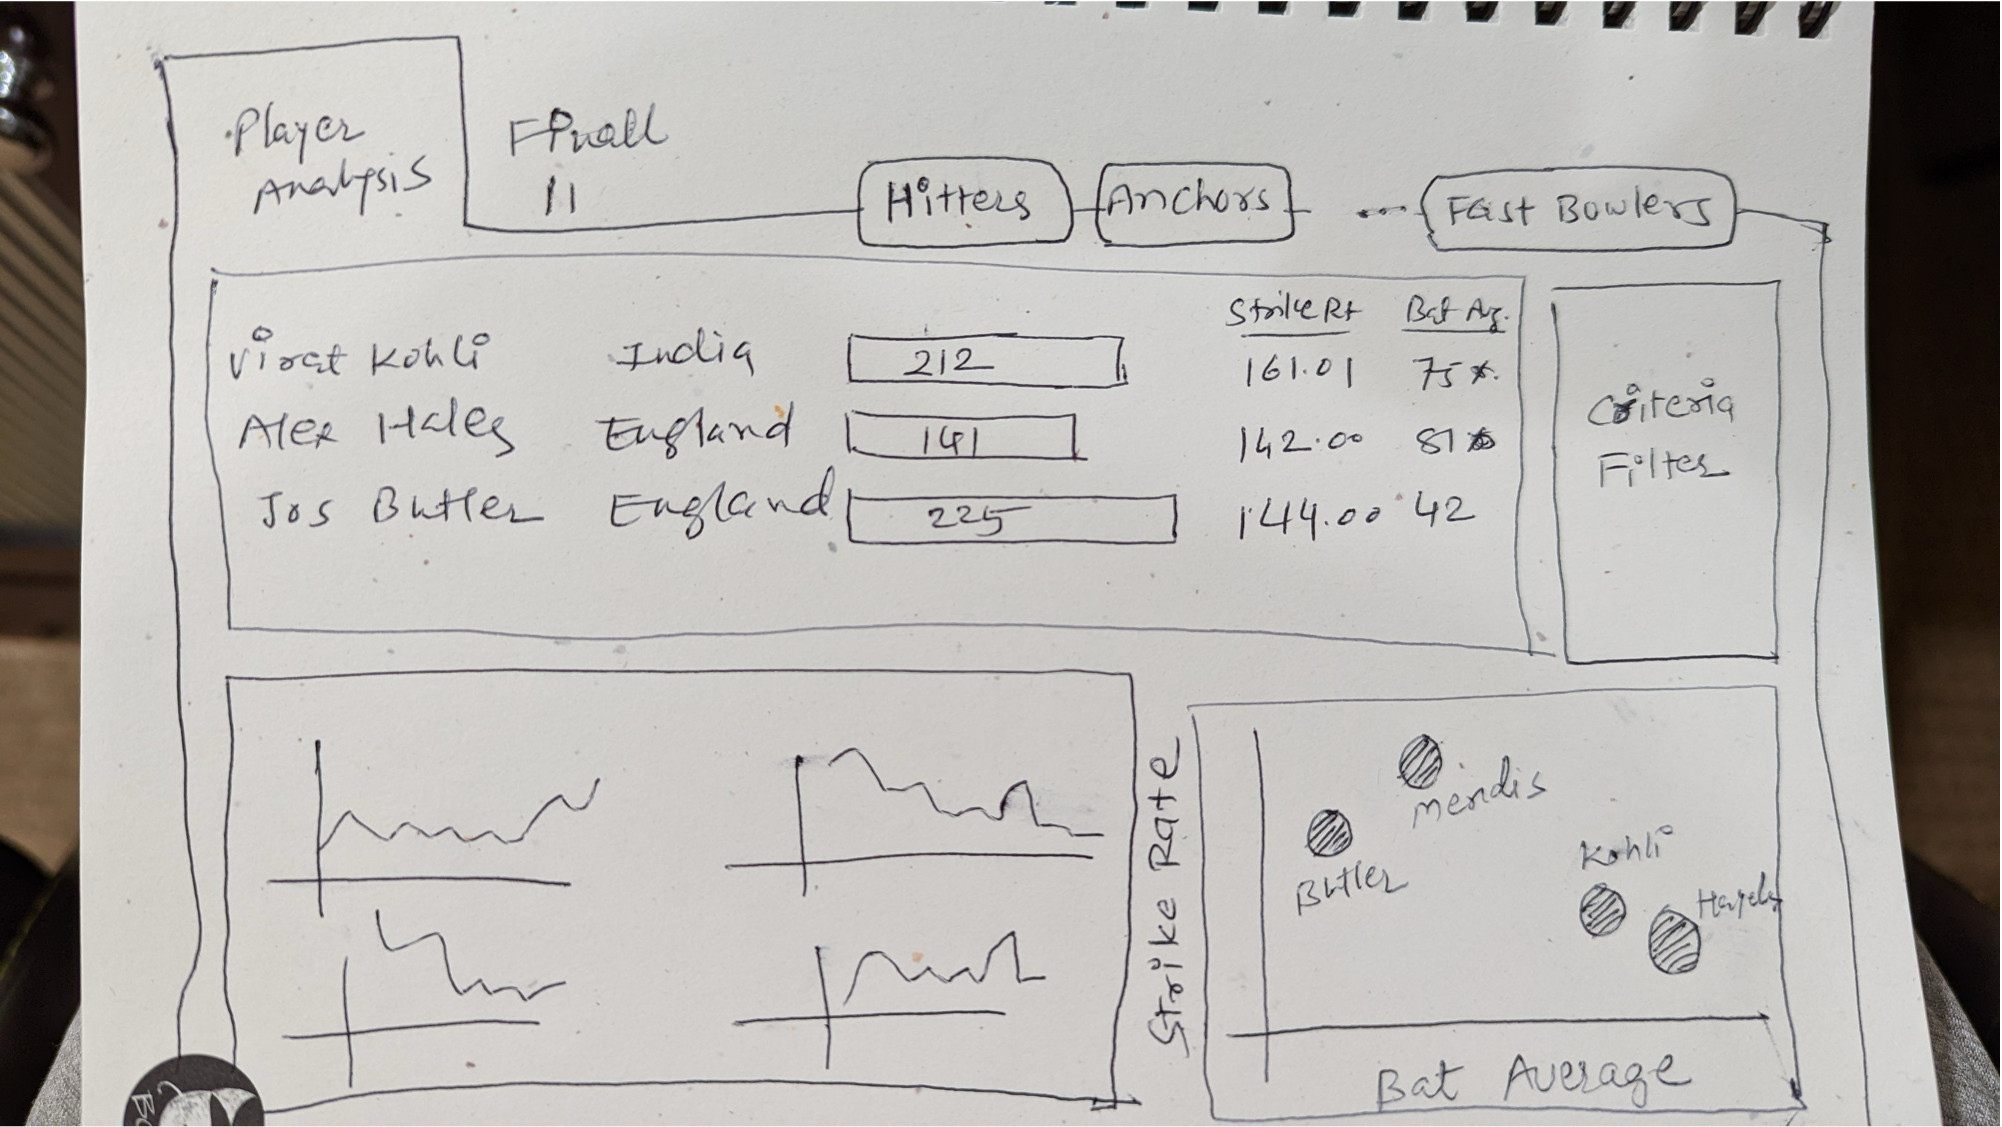 Player
Analysis
Final
11
Hitters
Anchors
...
Fast Bowlers
Strike Rt
Bat Avg.
Virat Kohli India 212 161.01 75*.
Alex Hales England 141 142.00 81*
Jos Butler England 225 144.00 42
Criteria
Filter
Strike Rate
Mendis
Butler
Kohli
Bat Average